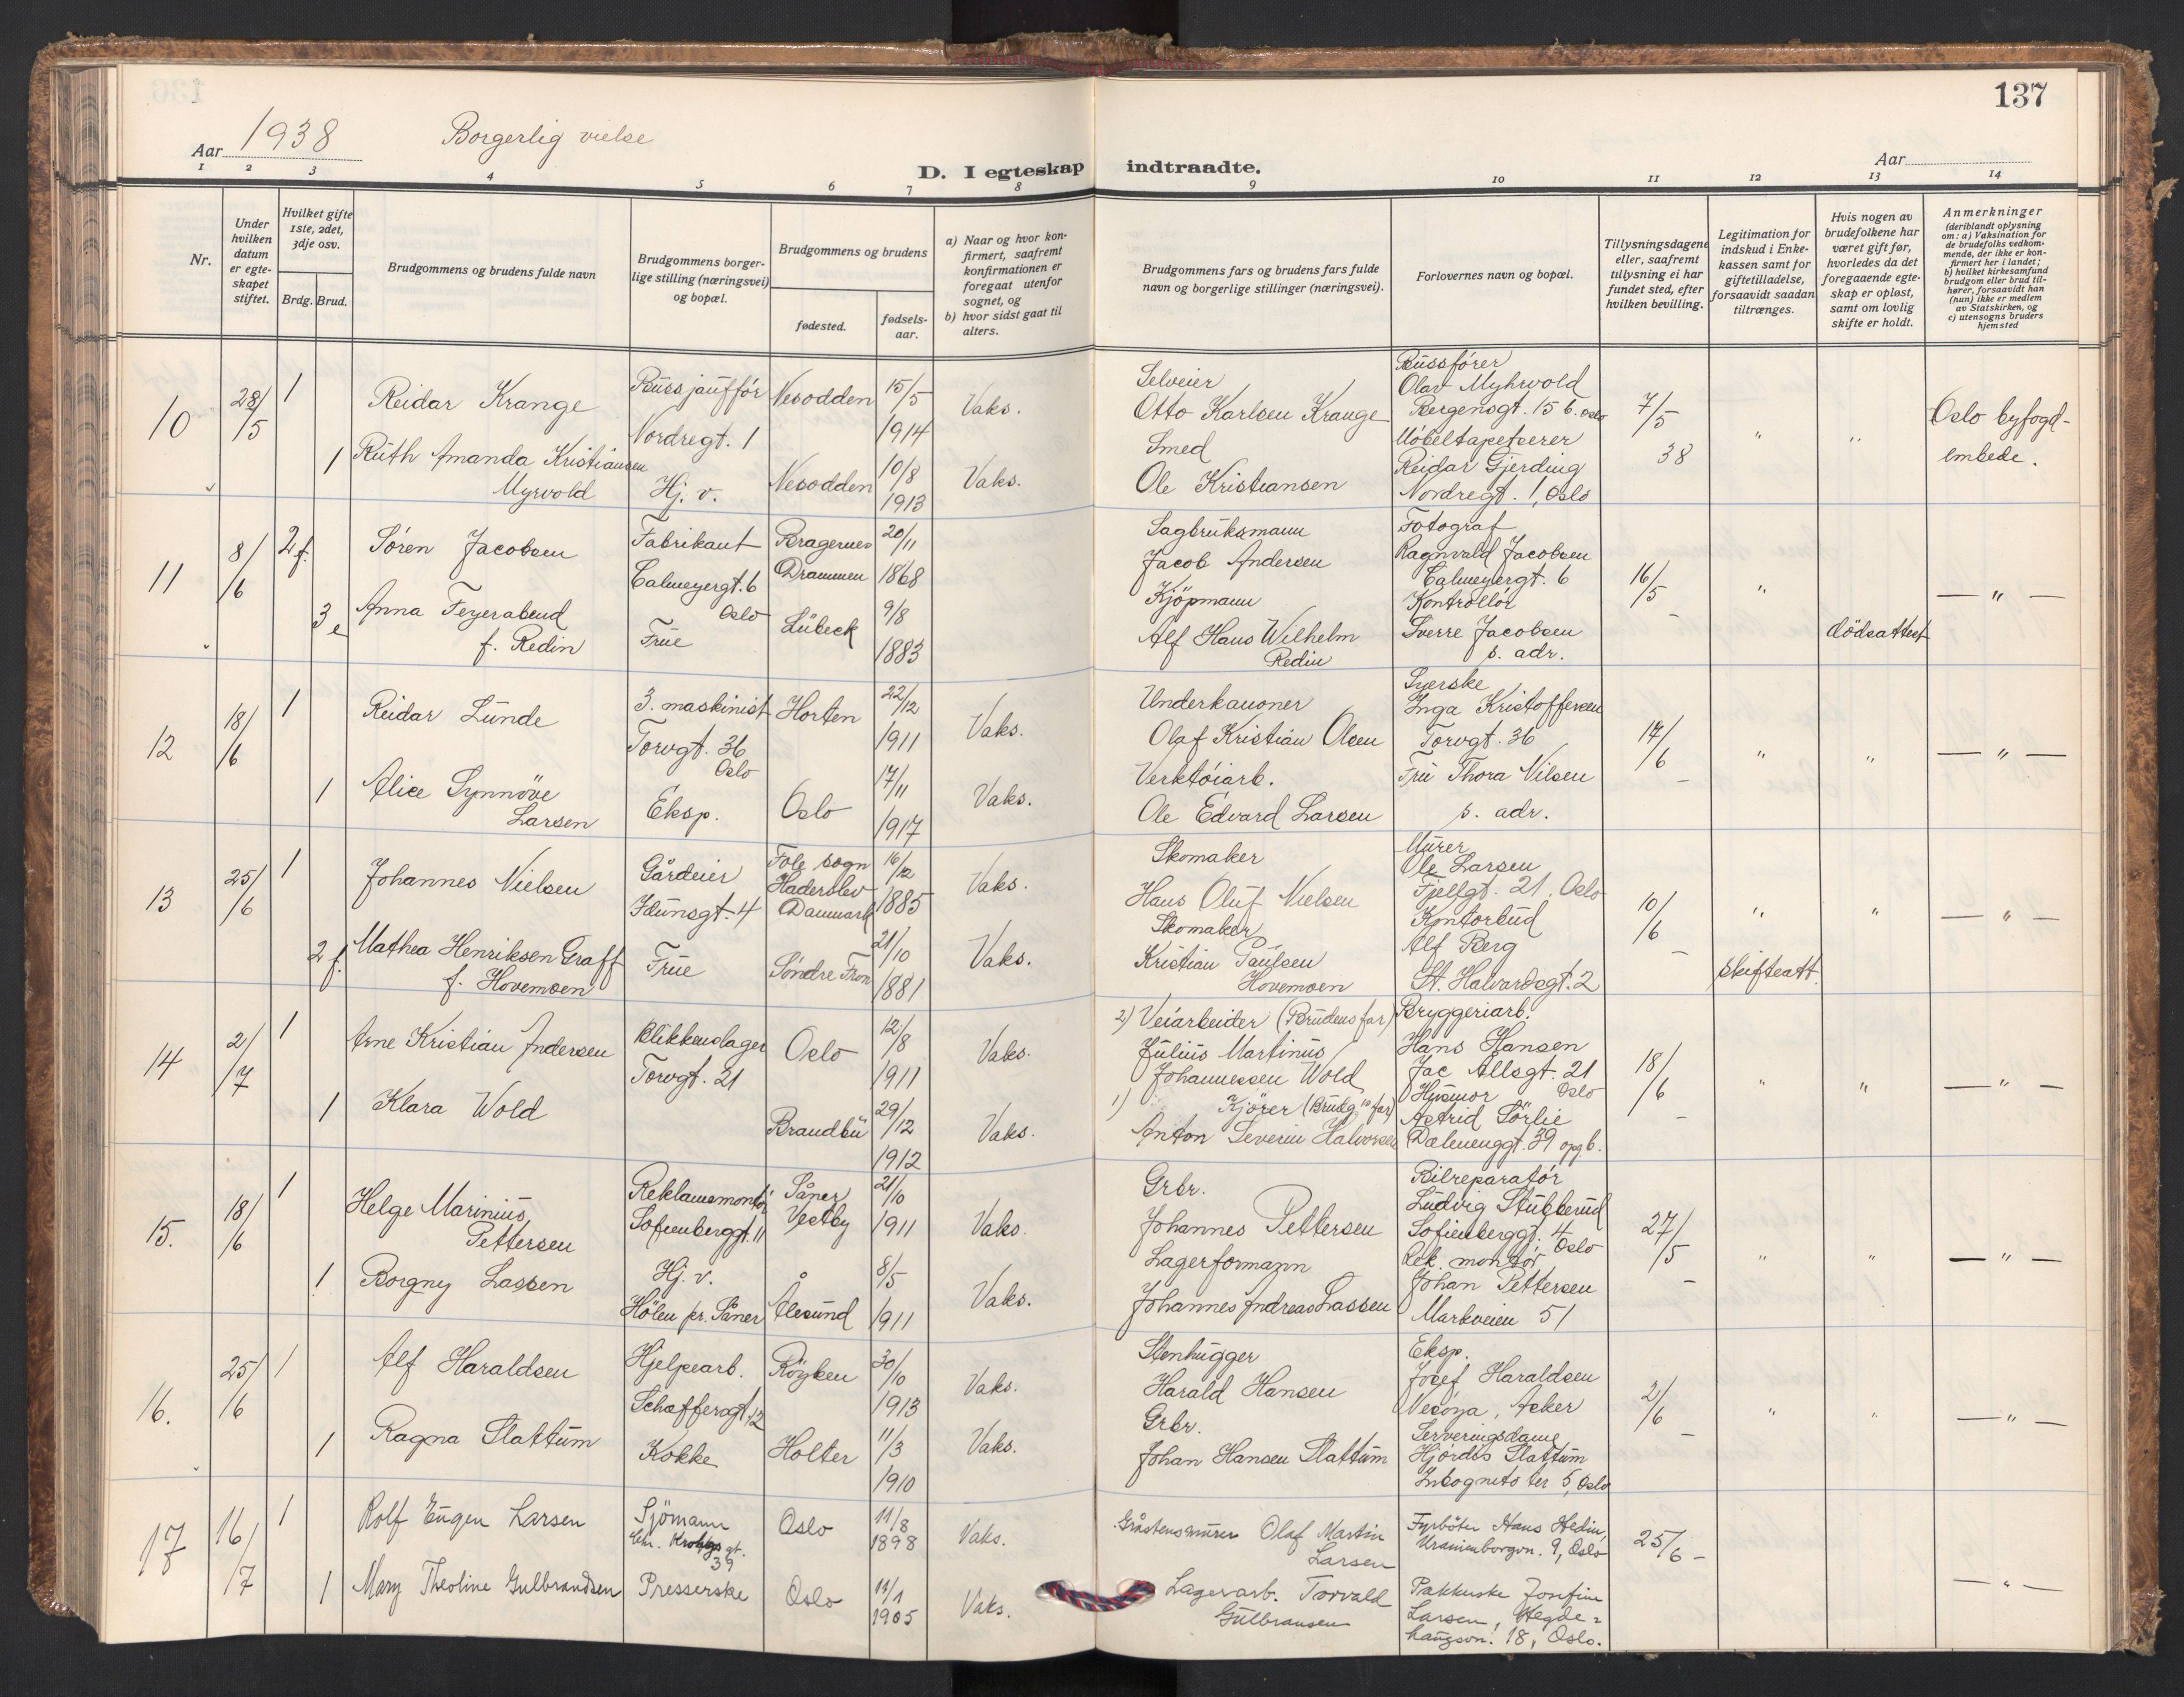 137
Aar 1938 Borgerlig vielse
D. I egteskap indtraadte.
Aar
1 2 3 4 5 6 7 8 9 10 11 12 13 14
Nr.
Under hvilken datum er egteskapet stiftet.
Hvilket gifte 1ste, 2det, 3dje osv.
Brdg. Brud.
Brudgommens og brudens fulde navn
Brudgommens borgerlige stilling (næringsvei) og bopæl.
Brudgommens og brudens
fødested.
fødselsaar.
a) Naar og hvor konfirmert, saafremt konfirmationen er foregaat utenfor sognet, og
b) hvor sidst gaat til alters.
Brudgommens fars og brudens fars fulde navn og borgerlige stillinger (næringsvei).
Forlovernes navn og bopæl.
Tillysningsdagene eller, saafremt tillysning ei har fundet sted, efter hvilken bevilling.
Legitimation for indskud i Enkekassen samt for giftetilladelse, forsaavidt saadan tiltrænges.
Hvis nogen av brudefolkene har været gift før, hvorledes da det foregaaende egteskap er opløst, samt om lovlig skifte er holdt.
Anmerkninger (deriblandt oplysning om: a) Vaksination for de brudefolks vedkommende, der ikke er konfirmert her i landet; b) hvilket kirkesamfund brudgom eller brud tilhører, forsaavidt han (hun) ikke er medlem av Statskirken, og c) utensogns bruders hjemsted
10 28/5 1 Reidar Krange Bussjauffør Nordregt. 1 Nesodden 15/5 1914 Vaks.
1 Ruth Amanda Kristiansen Myrvold Hj. v. Nesodden 10/8 1913 Vaks.
Selveier
Otto Karlsen Krange
Smed
Ole Kristiansen
Bussfører
Olav Myhrvold
Bergensgt. 15 b. Oslo
Møbeltapetserer
Reidar Gjerding
Nordregt. 1, Oslo
7/5 38 " " Oslo byfogdembede.
11 8/6 2 f. Søren Jacobsen Fabrikant Calmeyergt. 6 Oslo Bragernes Drammen 20/11 1868
3 e Anna Feyerabend f. Redin Frue Lübeck 9/8 1883
Sagbruksmann
Jacob Andersen
Kjöpmann
Alf Hans Wilhelm Redin
Fotograf
Ragnvald Jacobsen
Calmeyergt. 6
Kontrollör
Sverre Jacobsen
s. adr.
16/5 - " dödsattest — " —
12 18/6 1 Reidar Lunde 3. maskinist Torvgt. 36 Oslo Horten 22/12 1911 Vaks.
1 Alice Synnöve Larsen Eksp. Oslo 17/11 1917 Vaks.
Underkanoner
Olaf Kristian Olsen
Verktøiarb.
Ole Edvard Larsen
Syerske
Inga Kristoffersen
Torvgt. 36
Fru Thora Nilsen
s. adr.
17/6 - " " — " —
13 25/6 1 Johannes Nielsen Gårdeier Idunsgt. 4 Fole sogn Haderslev Danmark 16/12 1885 Vaks.
2 f. Mathea Henriksen Graff f. Hovemoen Frue Søndre Fron 21/10 1881 Vaks.
Skomaker
Hans Oluf Nielsen
Skomaker
Kristian Paulsen Hovemoen
Murer
Ole Larsen
Fjellgt. 21, Oslo
Kontorbud
Alf Berg
St. Halvardsgt. 2
10/6 - " " skifteatt. — " —
14 2/7 1 Arne Kristian Andersen Blikkenslager Torvgt. 21 Oslo 12/8 1911 Vaks.
1 Klara Wold Brandbu 29/12 1912 Vaks.
2) Veiarbeider (Brudens far)
Julius Martinus
Johannessen Wold
1) Kjører (Brudg.s far)
Anton Severin Halvorsen
Bryggeriarb.
Hans Hansen
Jac Allsgt. 21 Oslo
Husmor
Astrid Sörlie
Dælenenggt. 39 opg b.
18/6 - " " — " —
15. 18/6 1 Helge Marinius Pettersen Reklamemontör Sofienberggt. 11 Såner Vestby 21/10 1911 Vaks.
1 Borgny Lassen Hj. v. Hölen pr. Såner Ålesund 8/5 1911 Vaks.
Grbr.
Johannes Pettersen
Lagerformann
Johannes Andreas Lassen
Bilreparatør
Ludvig Stubberud
Sofienberggt. 4 Oslo
Rek. montör
Johan Pettersen
Markveien 51
27/5 - " " — " —
16. 25/6 1 Alf Haraldsen Hjelpearb. Schæffersgt. 12 Röyken 30/10 1913 Vaks.
1 Ragna Slattum Kokke Holter 11/3 1910 Vaks.
Stenhugger
Harald Hansen
Grbr.
Johan Hansen Slattum
Eksp.
Josef Haraldsen
Vesöya, Asker
Serveringsdame
Hjördis Slattum
Incognito ter 5, Oslo
2/6 - " " — " —
17 16/7 1 Rolf Eugen Larsen Sjömann Chr. Krohgs gt. 39 Oslo 11/8 1898 Vaks.
1 Mary Theoline Gulbrandsen Presserske Oslo 11/1 1905 Vaks.
Gråstensmurer Olaf Martin Larsen
Lagerarb. Torvald Gulbransen
Fyrböter Hans Hedin,
Uranienborgvn. 9, Oslo
Pakkerske Josefine
Larsen, Hegdehaugsvn. 18, Oslo.
25/6 - — " —